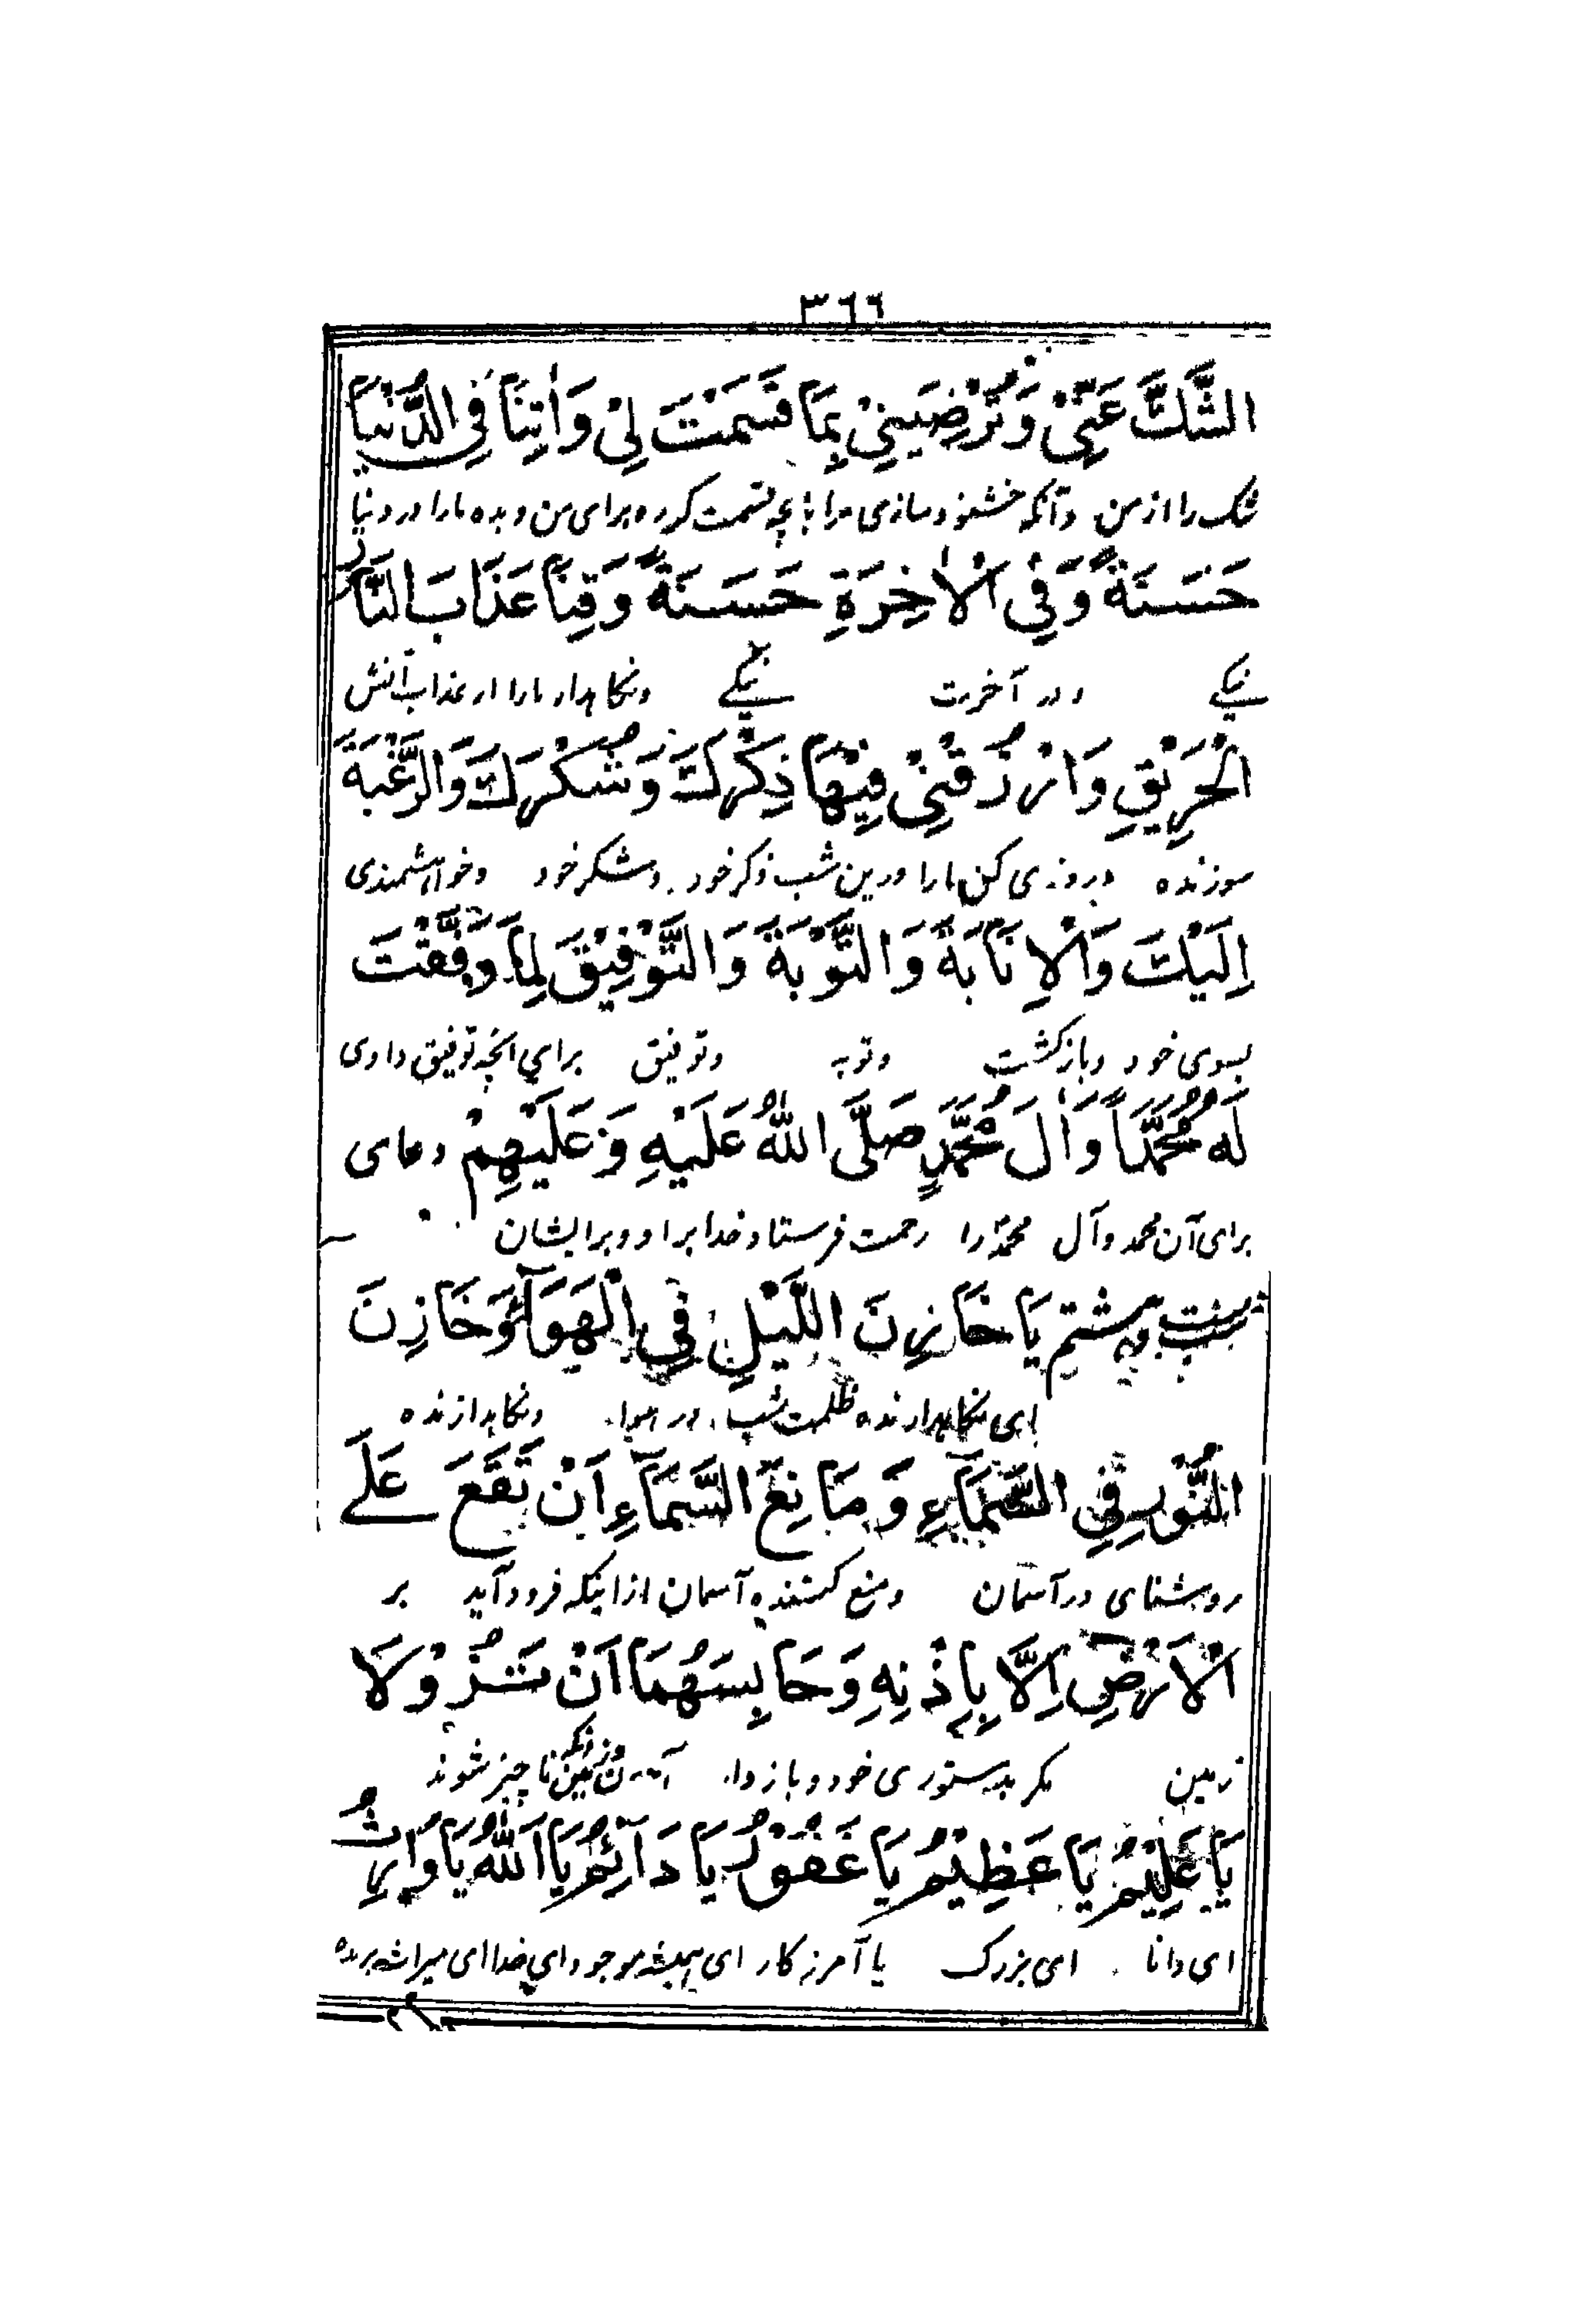 ٣٦٦
الشَّكَّ عَنِّيْ وَتُرْضِيَنِيْ بِمَا قَسَمْتَ لِيْ وَاٰتِنَا فِي الدُّنْيَا
شک را از من وآنکه خشنود سازی مرا بانچه قسمت کرده برای من و بده مارا در دنیا
حَسَنَةً وَّفِي الْاٰخِرَةِ حَسَنَةً وَّقِنَا عَذَابَ النَّارِ
نیکے ودر آخرت نیکے ونگاہدار مارا از عذاب آتش
الْحَرِيْقِ وَارْزُقْنِيْ فِيْهَا ذِكْرَكَ وَشُكْرَكَ وَالرَّغْبَةَ
سوزنده وروزی کن مارا درین شب ذکر خود وشکر خود وخواہشمندی
اِلَيْكَ وَالْاِنَابَةَ وَالتَّوْبَةَ وَالتَّوْفِيْقَ لِمَا وَفَّقْتَ
بسوی خود وبازگشت وتوبه وتوفیق برای آنچه توفیق دادی
لَهُ مُحَمَّدًا وَّاٰلَ مُحَمَّدٍ صَلَّى اللّٰهُ عَلَيْهِ وَعَلَيْهِمْ دعای
برای آن محمد وآل محمد را رحمت فرستاد خدا بر او وبر ایشان
شب بیست وہشتم يَا خَازِنَ اللَّيْلِ فِي الْهَوَآءِ وَخَازِنَ
ای نگاہدارنده ظلمت شب در ہوا ونگاہدارنده
النُّوْرِ فِي السَّمَآءِ وَمَانِعَ السَّمَآءِ اَنْ تَقَعَ عَلَے
روشنای در آسمان ومنع کننده آسمان از اینکه فرود آید بر
الْاَرْضِ اِلَّا بِاِذْنِهِ وَحَابِسَهُمَا اَنْ تَزُوْلَا
زمین مگر بدستوری خود وباز دار ناچیز شوند
يَا عَلِيْمُ يَا عَظِيْمُ يَا غَفُوْرُ يَا دَآئِمُ يَا اَللّٰهُ يَا وَارِثُ
ای دانا ای بزرگ یا آمرزگار ای ہمیشه موجود ای خدا ای میراث برنده